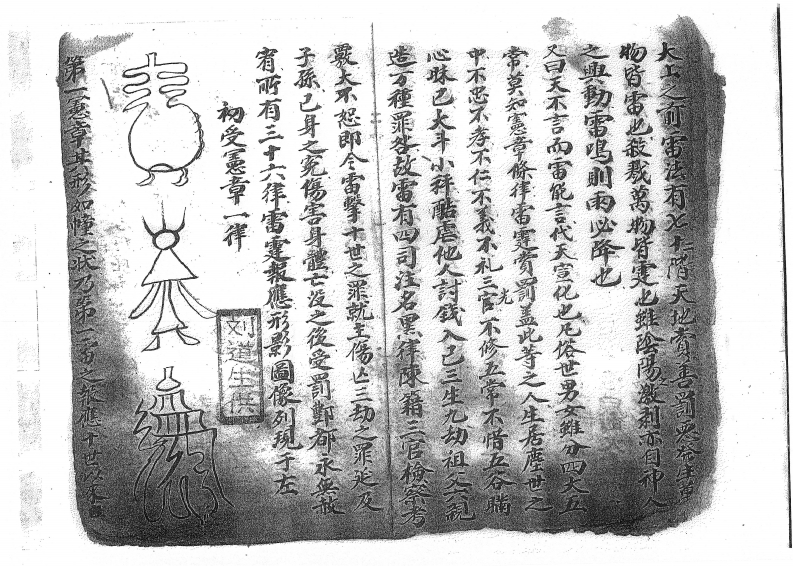 大凶之前雷法有七十二階天地賞善罰惡發生萬
物皆雷也殺戮萬物皆霆也雖陰陽激剥亦因神人
之興動雷鳴則雨必降也
又曰天不言而雷能言代天宣化也凡俗世男女雖分四大五
常莫知憲章條律雷霆賞罰盖此等之人生居塵世之
中不忠不孝不仁不義不礼三光官不修五常不惜五谷瞞
心昧己大斗小秤酷虐他人討錢入己三生九劫祖父六親
造万種罪咎故雷有四司注名黑律陳籍三官檢察考
覈大不恕即令雷擊十世之罪就生傷亡三劫之罪延及
子孫己身之冤傷害身體亡没之後受罰酆都永無赦
宥所有三十六律雷霆報應形影圖像列現于左
初受憲章一律
刘道生供
第一憲章其形如幢之狀乃第一雷之报應十世以來